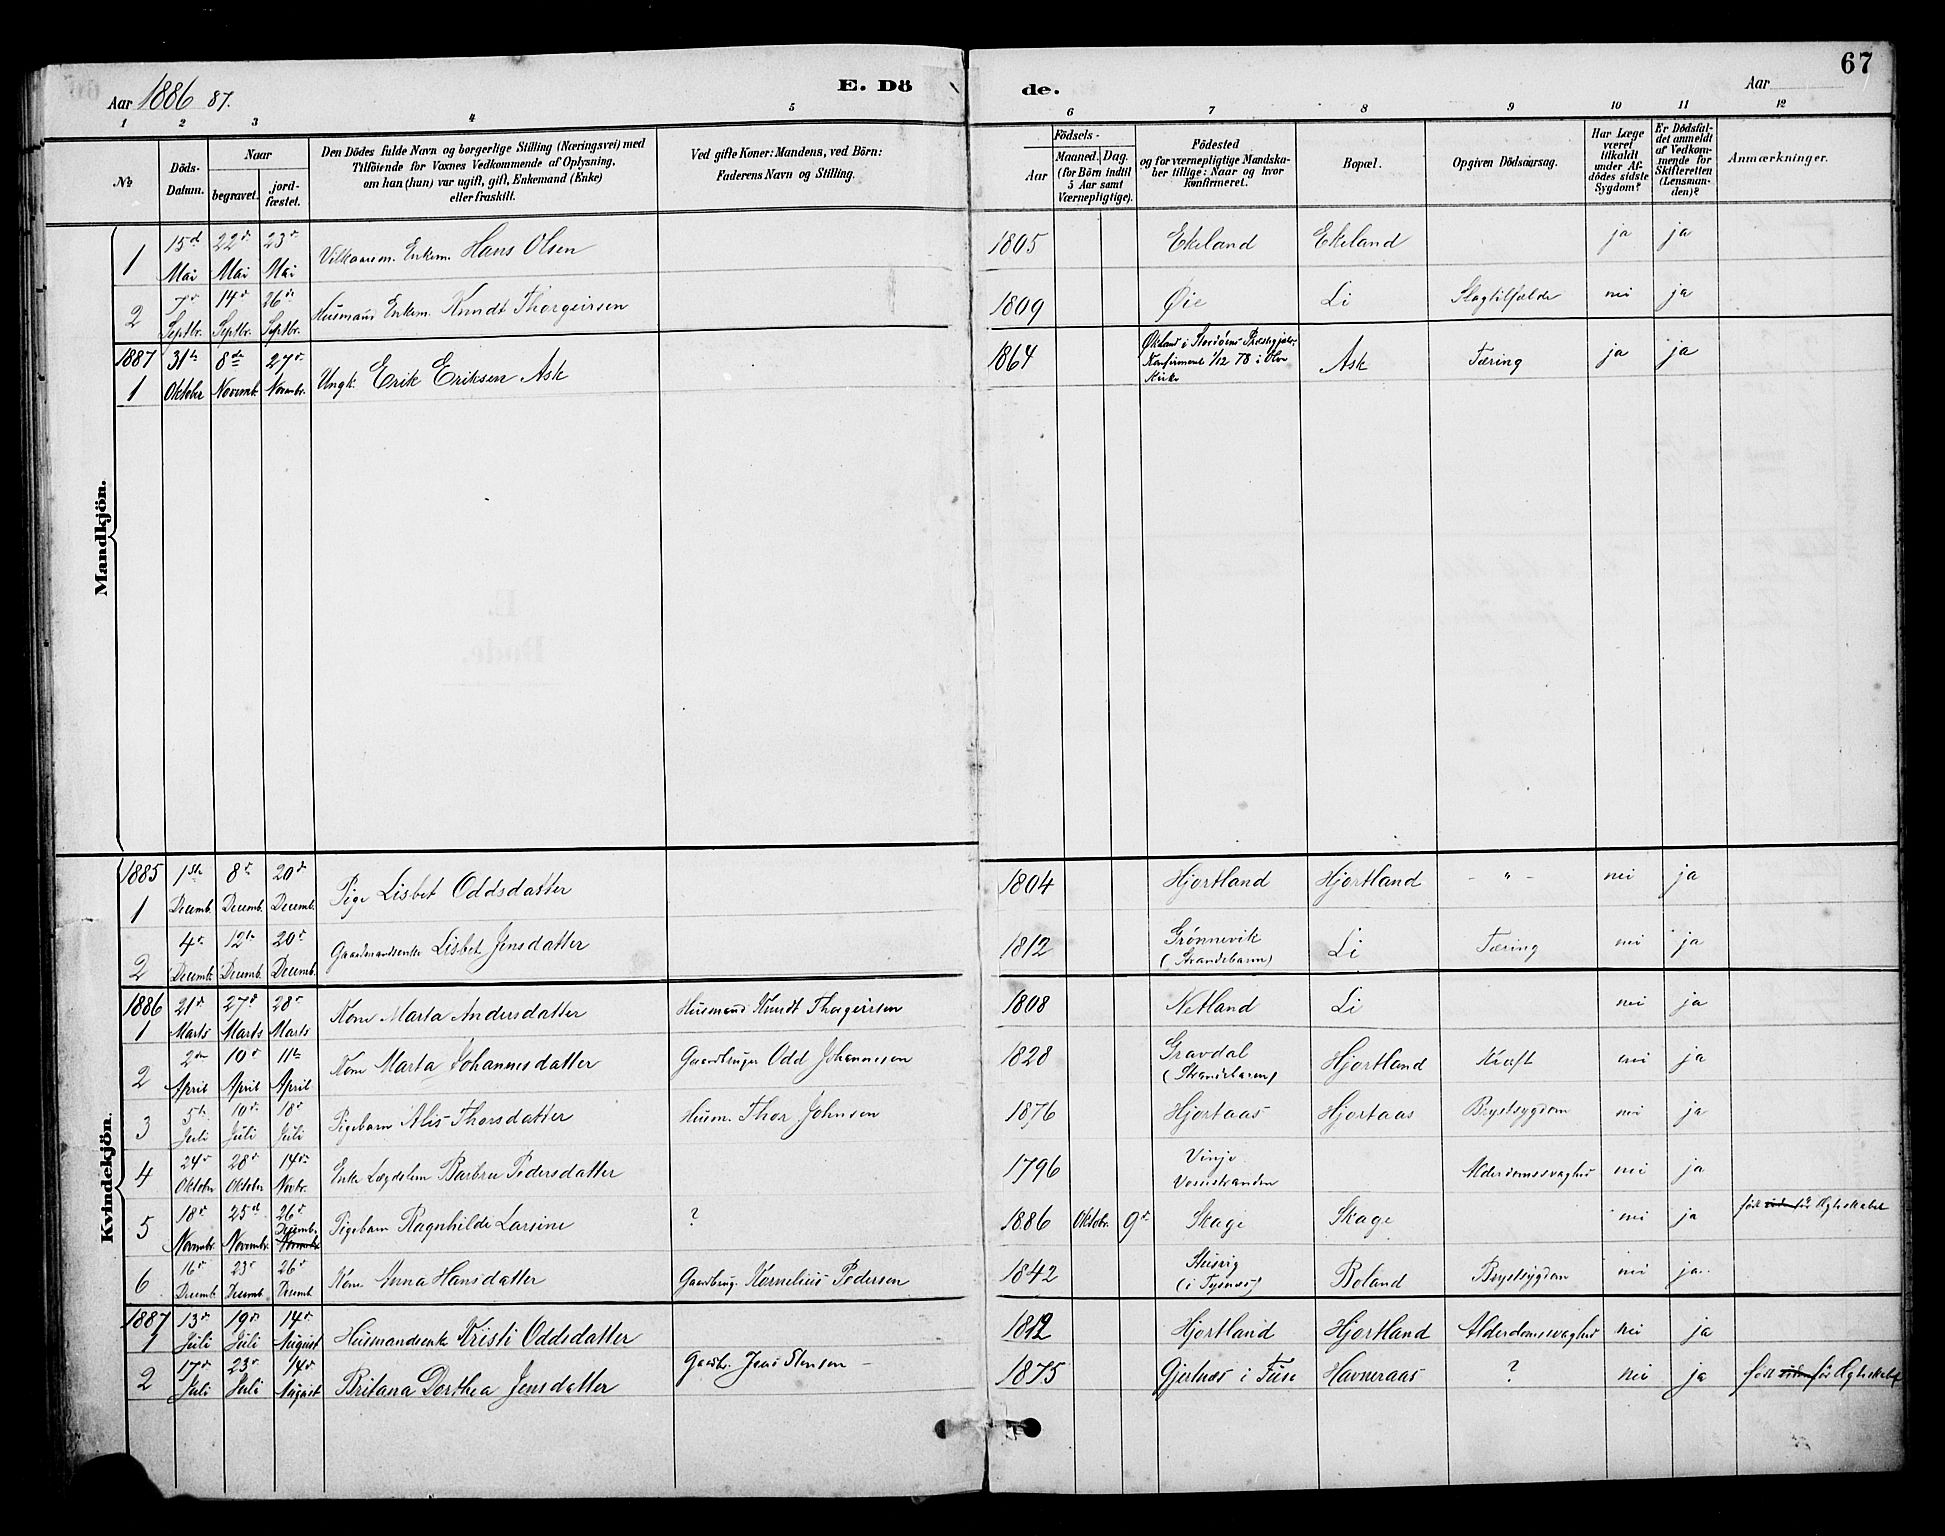 Aar 1886 87. E. Dö de. Aar 67
1 2 3 4 5 6 7 8 9 10 11 12
No
Döds-Datum.
Naar
begravet.
jord-fæstet.
Den Dödes fulde Navn og borgerlige Stilling (Næringsvei) med
Tilföiende for Voxnes Vedkommende af Oplysning,
om han (hun) var ugift, gift, Enkemand (Enke)
eller fraskilt.
Ved gifte Koner: Mandens, ved Börn:
Faderens Navn og Stilling.
Födsels-
Aar
Maaned. Dag.
(for Börn indtil
5 Aar samt
Værnepligtige).
Födested
og for værnepligtige Mandska-
ber tillige: Naar og hvor
konfirmeret.
Bopæl.
Opgiven Dödsaarsag.
Har Læge
været
tilkaldt
under Af-
dödes sidste
Sygdom?
Er Dödsfal-
det anmeldt
af Vedkom-
mende for
Skifteretten
(Lensman-
den)?
Anmærkninger.
Mandkjön.
1 15d Mai 22d Mai 23d Mai Vilkaarsm. Enkem. Hans Olsen 1805 Ekeland Ekeland ja ja
2 7d Septbr. 14d Septbr. 26de Septbr. Husmand Enkem. Knudt Thorgeirsen 1809 Øie Li Slagtilfælde nei ja
1887
1 31te Oktober 8de Novemb. 27d Novembr. Ungk. Erik Eriksen Ask 1864 Ask Tæring ja ja
Konfirmeret 1/12 78 i
Kirke
Kvindekjön.
1885
1 1ste Decemb. 8de Decemb. 20de Decemb. Pige Lisbet Oddsdatter 1804 Hjortland Hjortland - " - nei ja
2 4de Decemb. 12te Decemb. 20d Decemb. Gaardmandsenke Lisbet Jensdatter 1812 Grønnevik (Strandebarm) Li Tæring nei ja
1886
1 21d Marts 27d Marts 28d Marts Kone Marta Andersdatter Husmand Knudt Thorgeirsen 1808 Netland Li nei ja
2 2den April 10d April 11te April Kone Marta Johannesdatter Gaardbruger Odd Johannesen 1828 Gravdal (Strandebarm) Hjortland Kræft nei ja
3 5te Juli 10de Juli 18d Juli Pigebarn Alis Thorsdatter Husm. Thor Johnsen 1876 Hjortaas Hjortaas Brystsygdom nei ja
4 24d Oktober 28d Oktober 14de Novbr. Enke Lægdslem Barbru Pedersdatter 1796 Vinje Vossestranden Alderdomssvaghed nei ja
5 18d Novembr. 25d Novembr. 26d Decemb. Novembr Pigebarn Ragnhilde Larsine ? 1886 Oktobr. 9d Skage Skage nei ja født uden før Ægteskabet
6 16d Decemb. 23d Decemb. 26d Decemb. Kone Anna Hansdatter Gaardbrug. Kornelius Pedersen 1842 (i Tysnes) Boland Brystsygdom nei ja.
1887
1 13d Juli 19d Juli 14d August Husmandsenke Kristi Oddsdatter 1812 Hjortland Hjortland Alderdomssvaghed nei ja
2 17d Juli 23d Juli 14d August Britana Dorthea Jensdatter Gaardbr. Jens Stensen - 1875 Gjertnes i Fuse Havneraas ? nei ja født uden før Ægteskabet